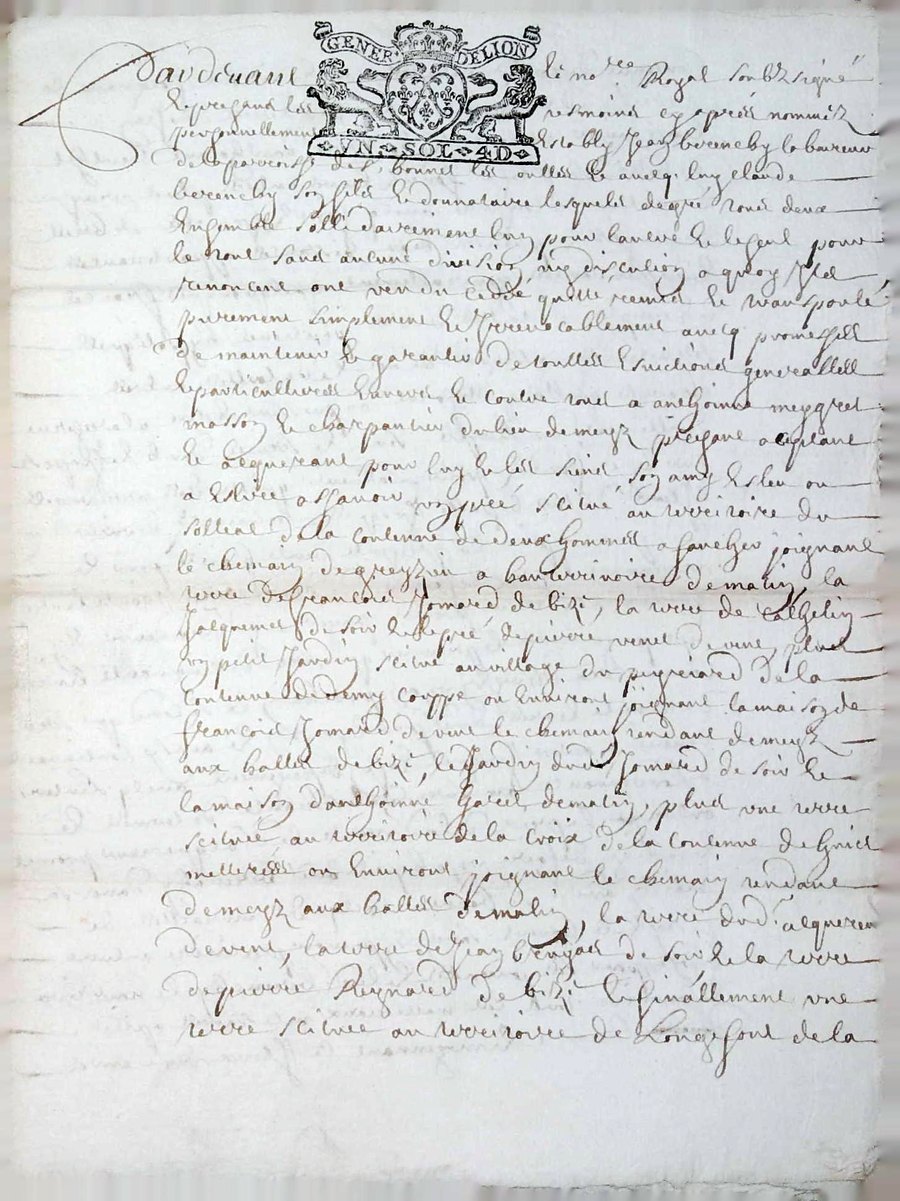 GENER DELION
VN SOL 4D
Pardevant le no.re Royal soubz signé
Et presans les tesmoins cy apprés nommez
personnellement Estably Jean laboureur
de la parroisse de St bonnet les oulles Et avecq luy claude
son filz Et donnataire lesquels de gré tous deux
Ensemble sollidairement l'un pour l'autre Et le seul pour
le tout sans aucune division ny discution a quoy Ilz
renoncent ont vendu ceddé quitté remis Et transporté
purement simplement Et Irrevocablement avecq promesses
de maintenir Et garantir de touttes Evictions generalles
Et particullieres Envers Et contre tous a anthoinne meygret
masson Et charpantier du lieu de meyz presant aceptant
Et acquerant pour luy Et les siens son amy Esleu ou
a Eslire assavoir un pré scitué au territoire du
de la contenue de deux hommes a faucher joignant
le chemain de a de matin la
terre de francois Jomard de bize, la terre de
Jacquemet de soir Et le pré de pierre de vent, plus
un petit Jardin scitué au village du de la
contenue de demy couppe ou Environt joignant la maison de
francois Jomard de vent le chemain tendant de meyz
aux halles de bize, le Jardin dud. Jomard de soir Et
la maison d'anthoinne de matin, plus une terre
scituée au territoire de la croix de la contenue de huict
metterées ou Environt joignant le chemain tendant
de meyz aux halles de matin, la terre dud. acquereur
de vent, la terre de Jean de soir Et la terre
de pierre Reynard de bize Et finallement une
terre scituée au territoire de de la